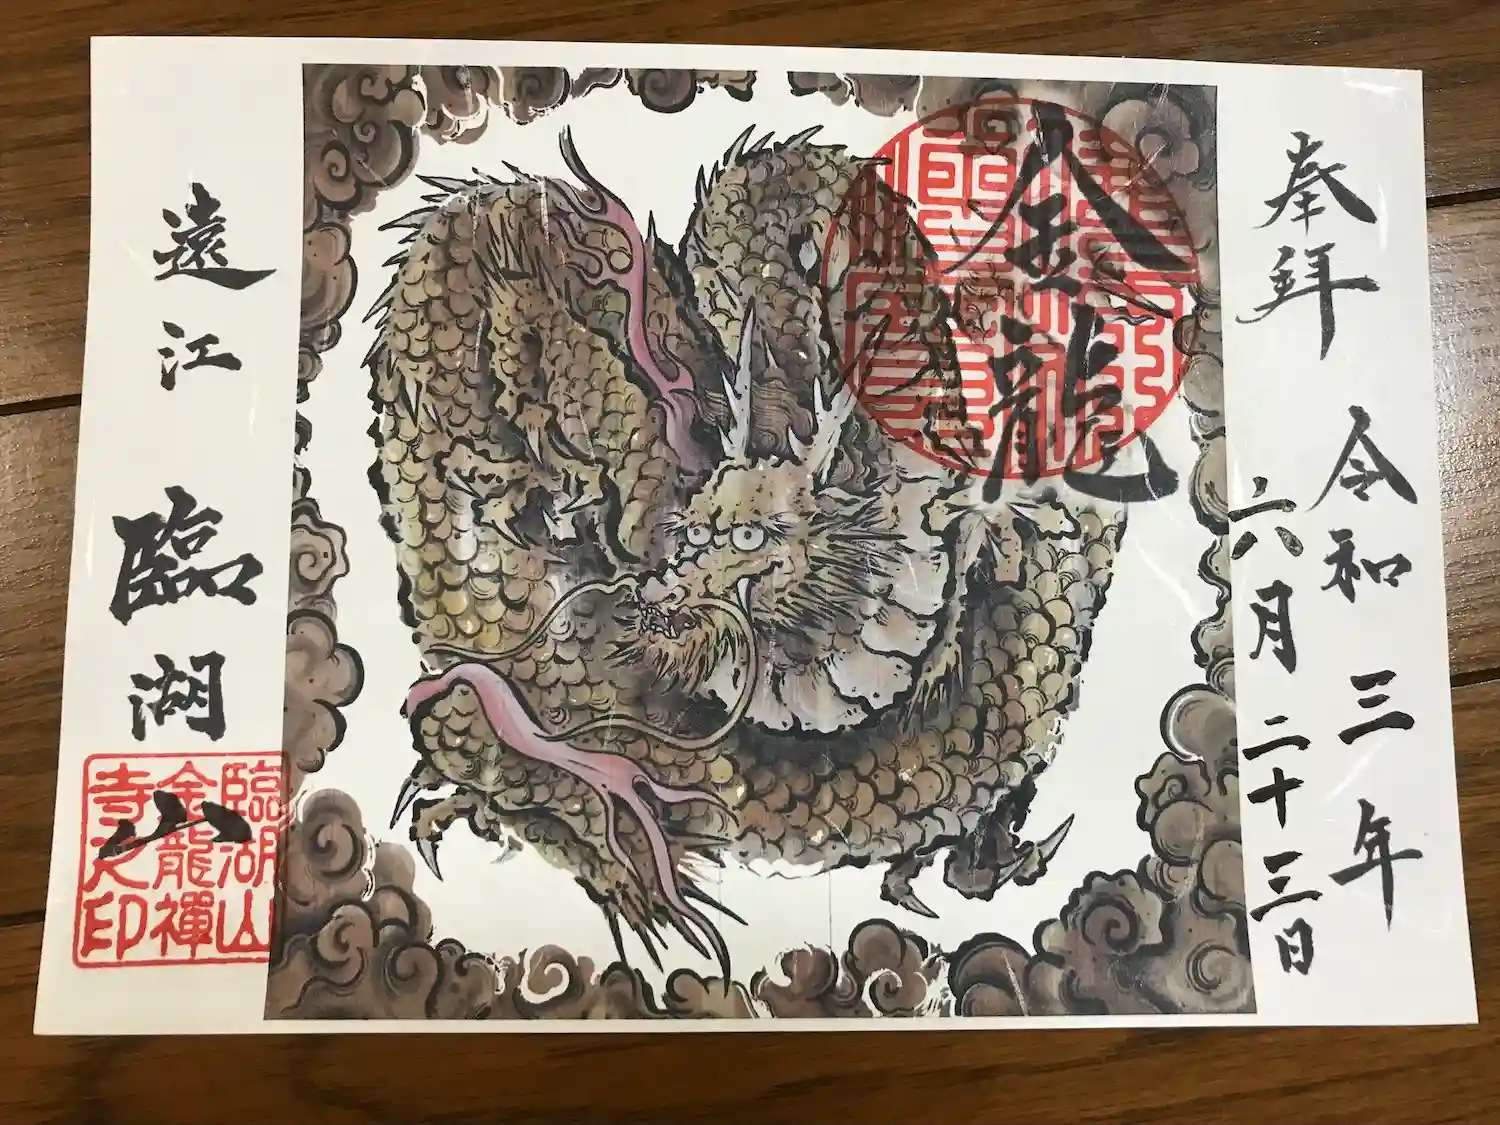 奉拜
令和三年
六月二十三日
金龍
遠江
臨湖山
臨湖山
金龍禪
寺之印